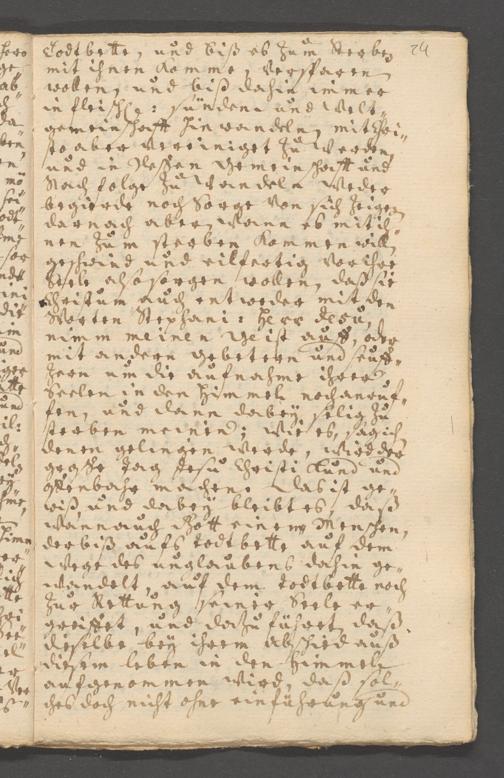 24
Todtbette, und biß es zum Sterben
mit ihnen komme, verspahren
wollen, und biß dahin immer
in fleisch: sünden: und Welt-
gemeinschafft hinwandeln, mit Chri-
sto aber vereiniget zu werden,
und in dessen Gemeinschafft und
Nachfolge zu wandeln weder
begierde noch Sorge von sich zeigen
darnach aber, wann es mit ih-
nen zum sterben kommen will,
geschwind und eilfertig vor ihre
Seele also sorgen wollen, daß sie
Christum auch entweder mit den
Worten Stephani: Herr Jesu,
nimm meinen Geist auff, oder
mit andern gebetern und seuff-
zern um die aufnahme ihrer
Seelen in den Himmel noch anruf-
fen, und dann dabey selig zu
sterben meinen; wie es, sag ich
denen gelingen werde, wird der
große Tag Jesu Christi kund und
offenbahr machen. Das ist ge-
wiß und dabey bleibt es, daß
wann auch Gott einem Menschen,
der biß aufs todtbette auf dem
Wege des unglaubens dahin ge-
wandelt, auf dem todtbette noch
zur Rettung seiner Seele er-
greiffet, und dazu führet, daß
dieselbe bey ihrem abschied auß
diesem leben in den Himmel
aufgenommen wird, daß sol-
ches doch nicht ohne einführung und